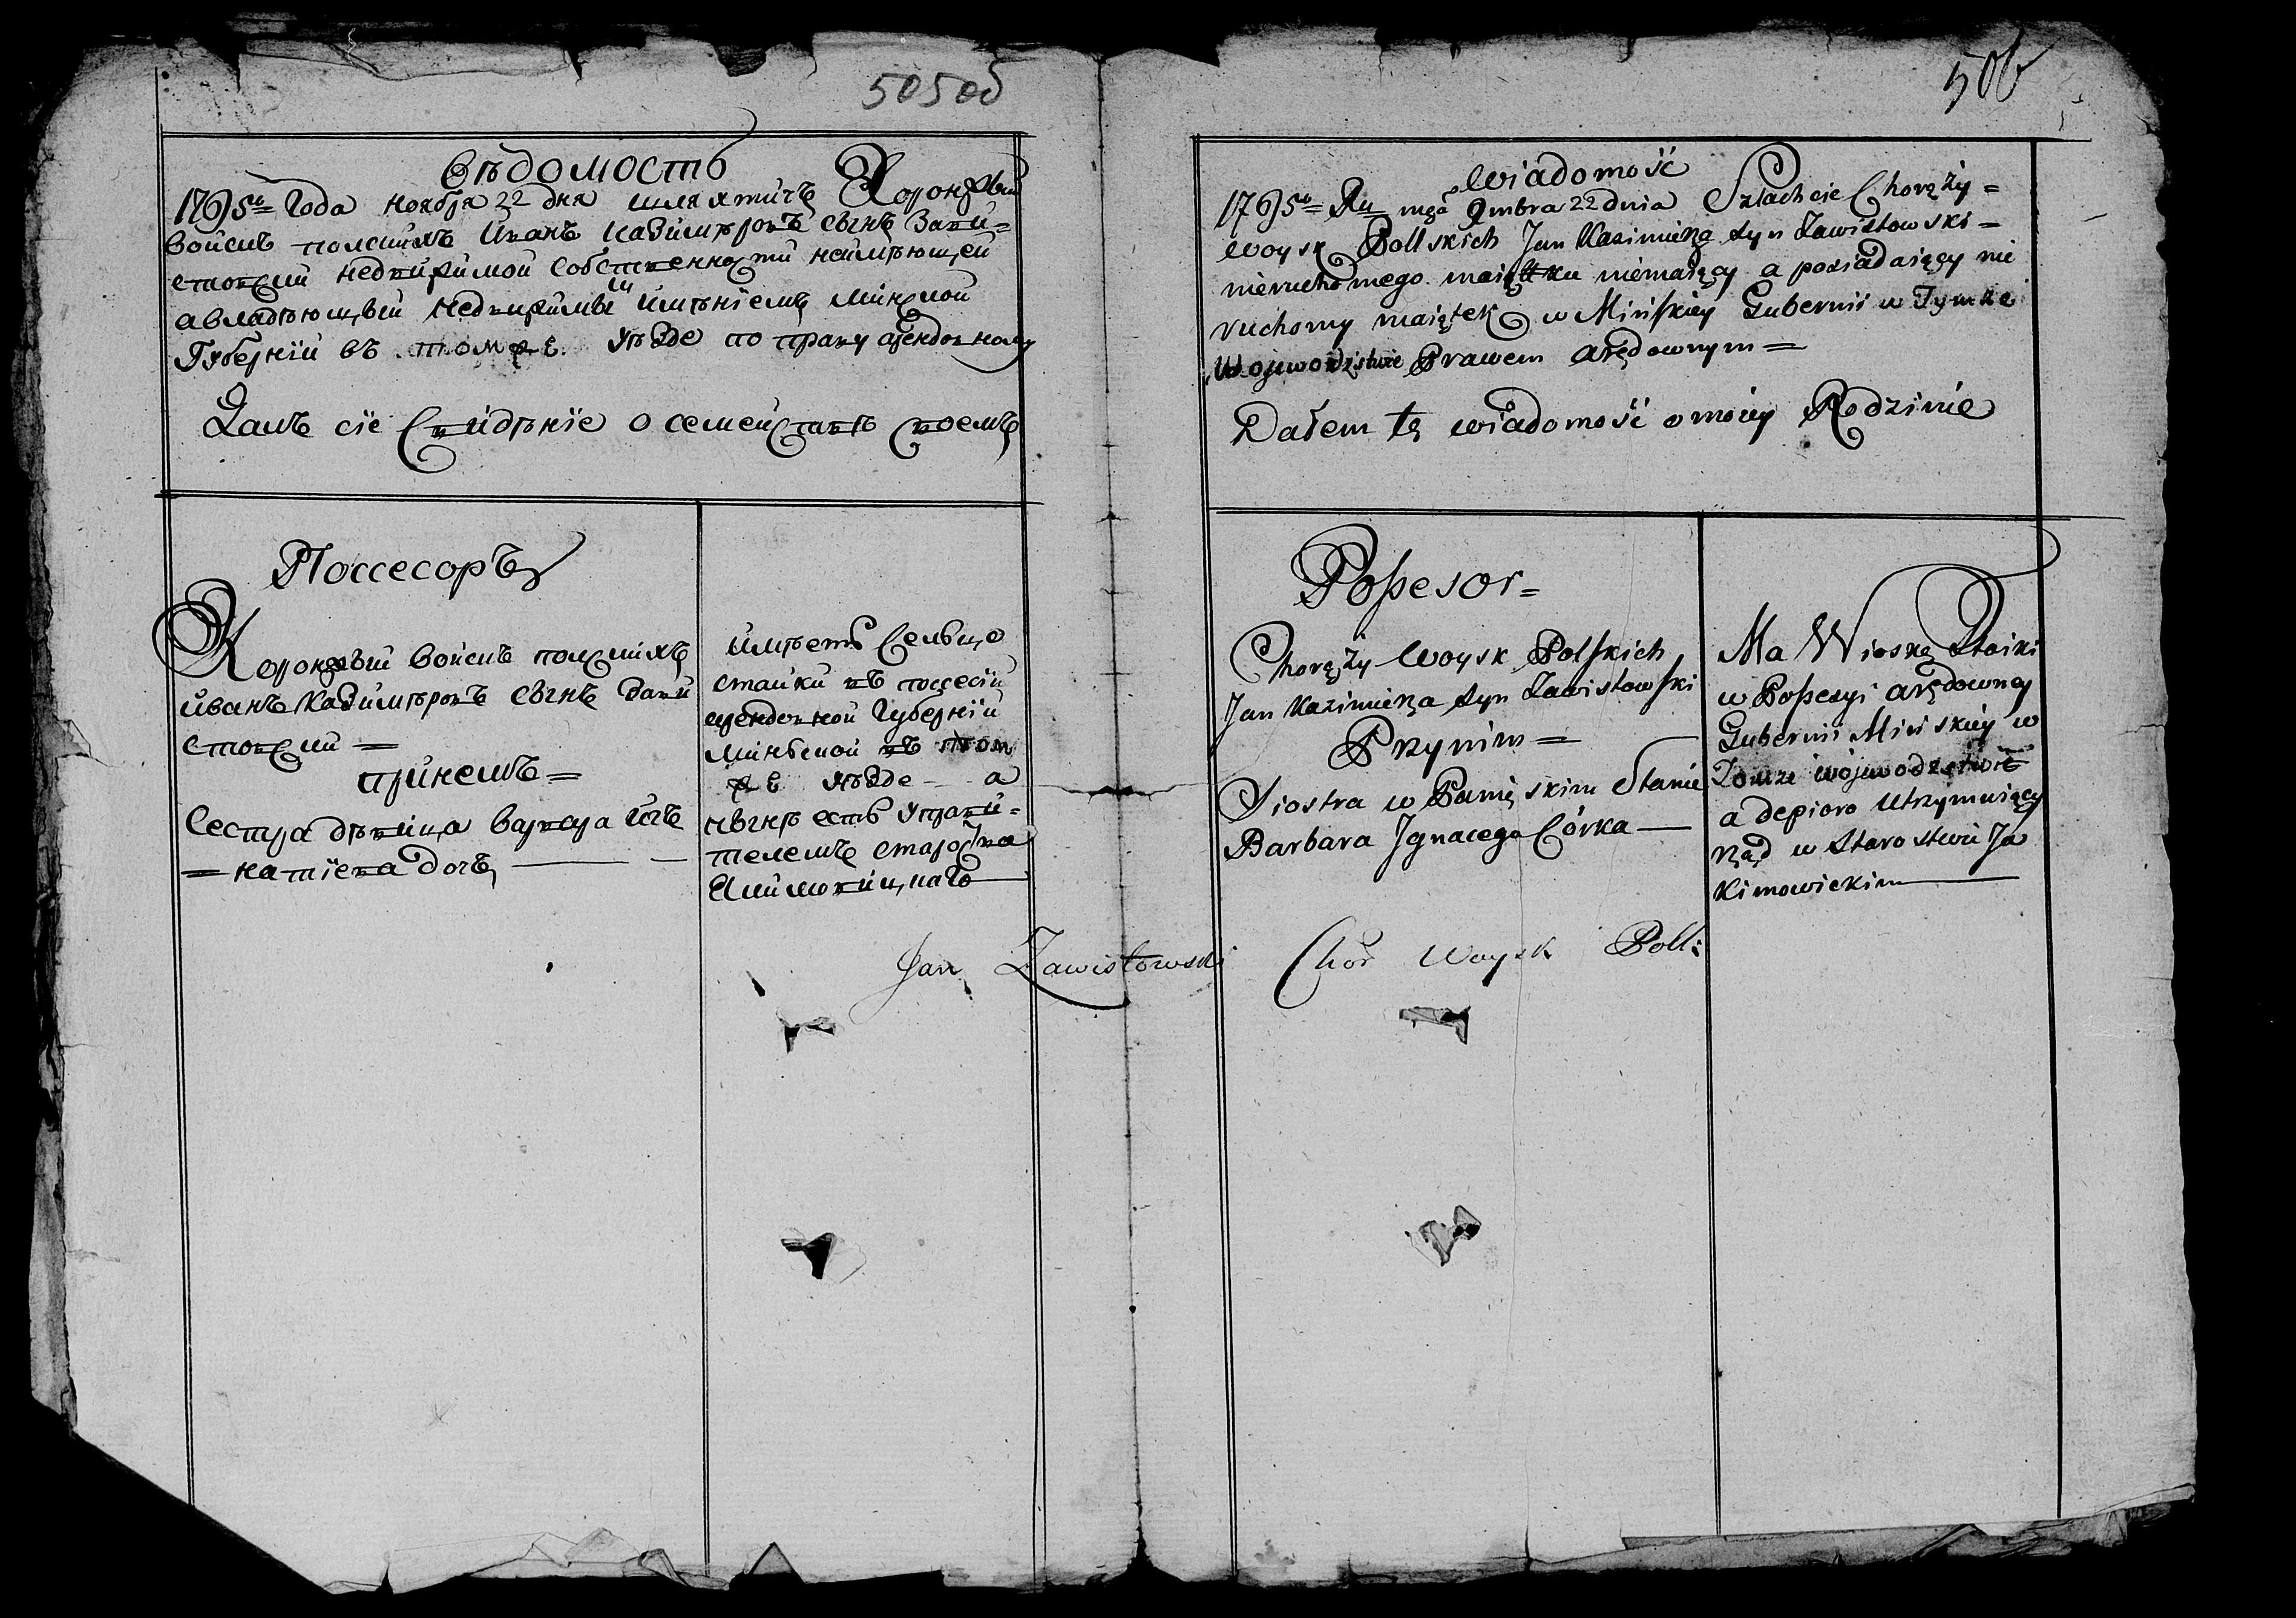 505об
Вѣдомость
1795го Года ноября 22 дня шляхтичъ Хоронжый
войскъ полскихъ Иванъ Казимѣровъ сынъ Зави=
стовский недвижимой собственности неимѣющей
авладѣющый недвижимым имѣніемъ Минской
Губерніи въ томже уѣзде по праву арендовному
Далъ сіе свидѣніе о семействѣ своемъ
Поссесоръ
Хоронжый войскъ полскихъ
Иванъ Казимѣровъ сынъ Зави
стовский =
принемъ =
Сестра дѣвица варвара Иг
= натіева дочь
имѣетъ Сельцо
стайки въ поссесіи
арендовной Губерніи
Минской въ том
же уѣзде - а
нынѣ есть управи=
телемъ староства
Jan Zawistowski Chor Woysk Poll:
506
Wiadomość
1795o Ru mca 9mbra 22 dnia Szlachcic Chorąży =
Woysk Pollskich Jan Kazimierza syn Zawistowski =
nieruchomego maiątku niemaiący a posiadaiący nie
ruchomy maiątek w Mińskiey Gubernii w Tymze
Wojewodzstwie Prawem arędownym =
Dałem tę wiadomość o moiey Rodzinie
Possesor =
Chorąży Woysk Polskich
Jan Kazimierza syn Zawistowski
Przynim =
Siostra w Panięskim Stanie
Barbara Jgnacego Córka
Ma Wioskę Staiki
w Possesyi arędowney
Gubernii Mińskiey w
Tomze wojewodzstwie
a depioro utrzymuiący
rząd w Starostwie Ja
kimowickim